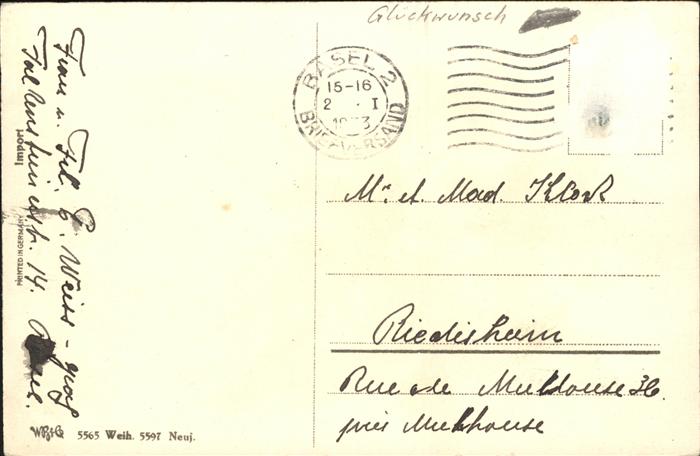 Glückwunsch
BASEL 2
15-16
2 . I
1933
BRIEFVERSAND
Mr. et. Mad. Klock
Riedisheim
Rue de Mulhouse 36.
près Mulhouse
Frau u. Frl. C. Weiss - Graf
Falkensteinerstr. 14. Basel.
Import
PRINTED IN GERMANY
5565 Weih. 5597 Neuj.